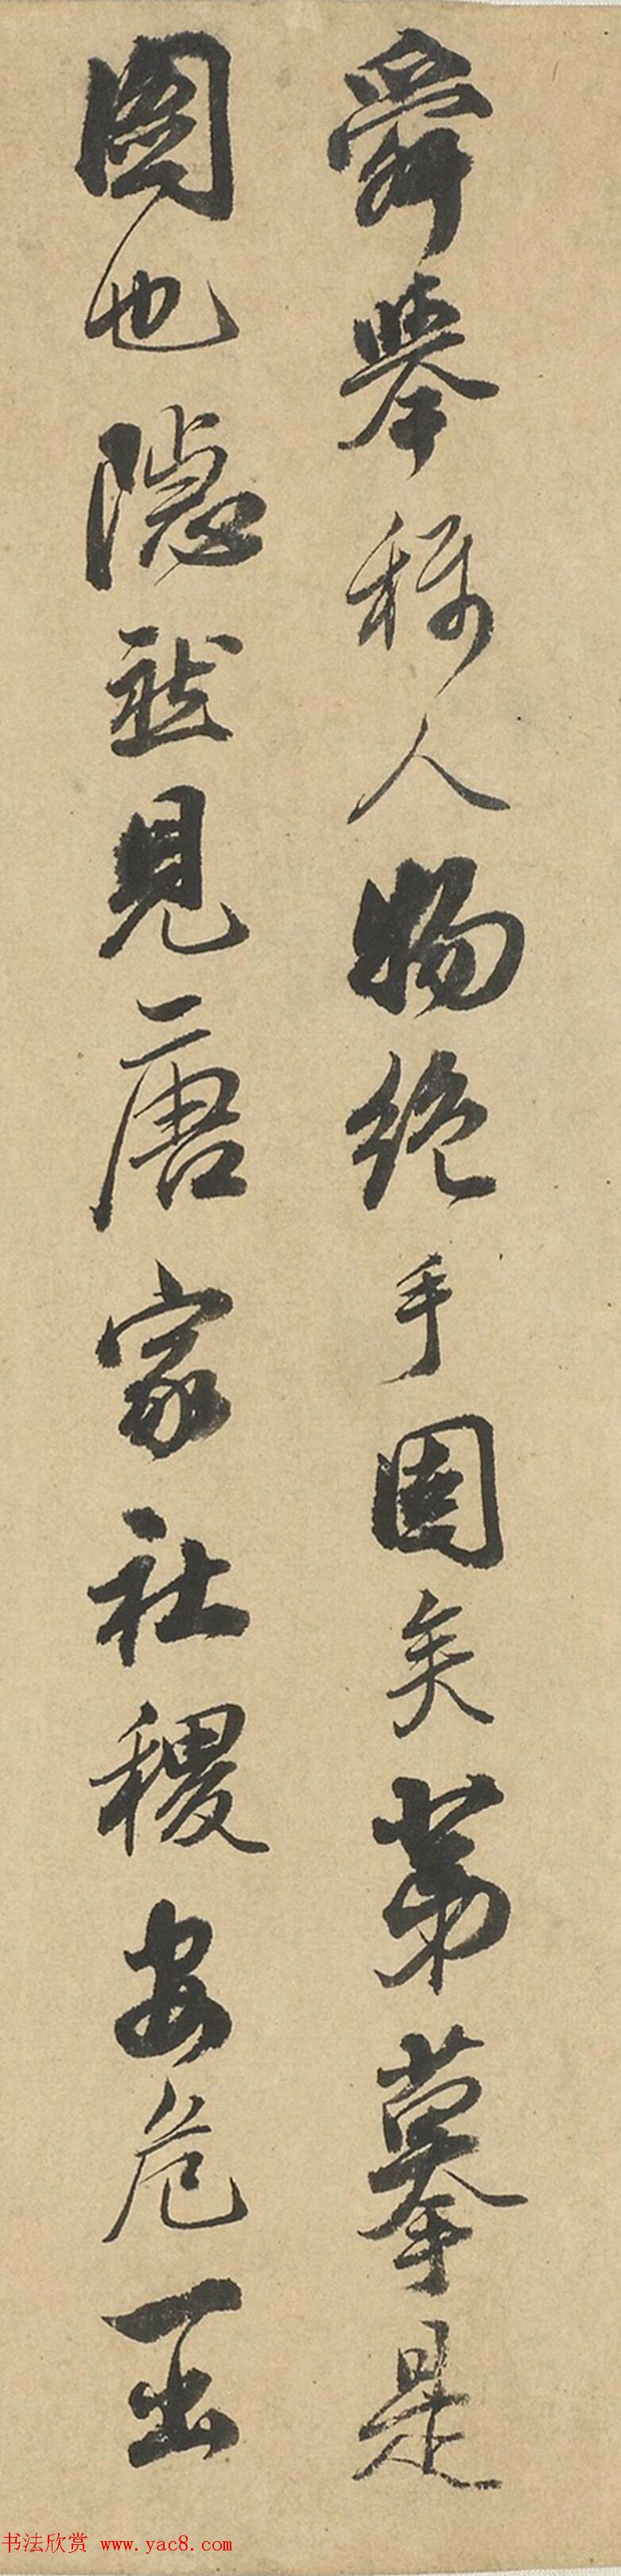 舜舉稱人物絶手固矣第摹是
圖也隱然見唐家社稷安危一出
书法欣赏 www.yac8.com